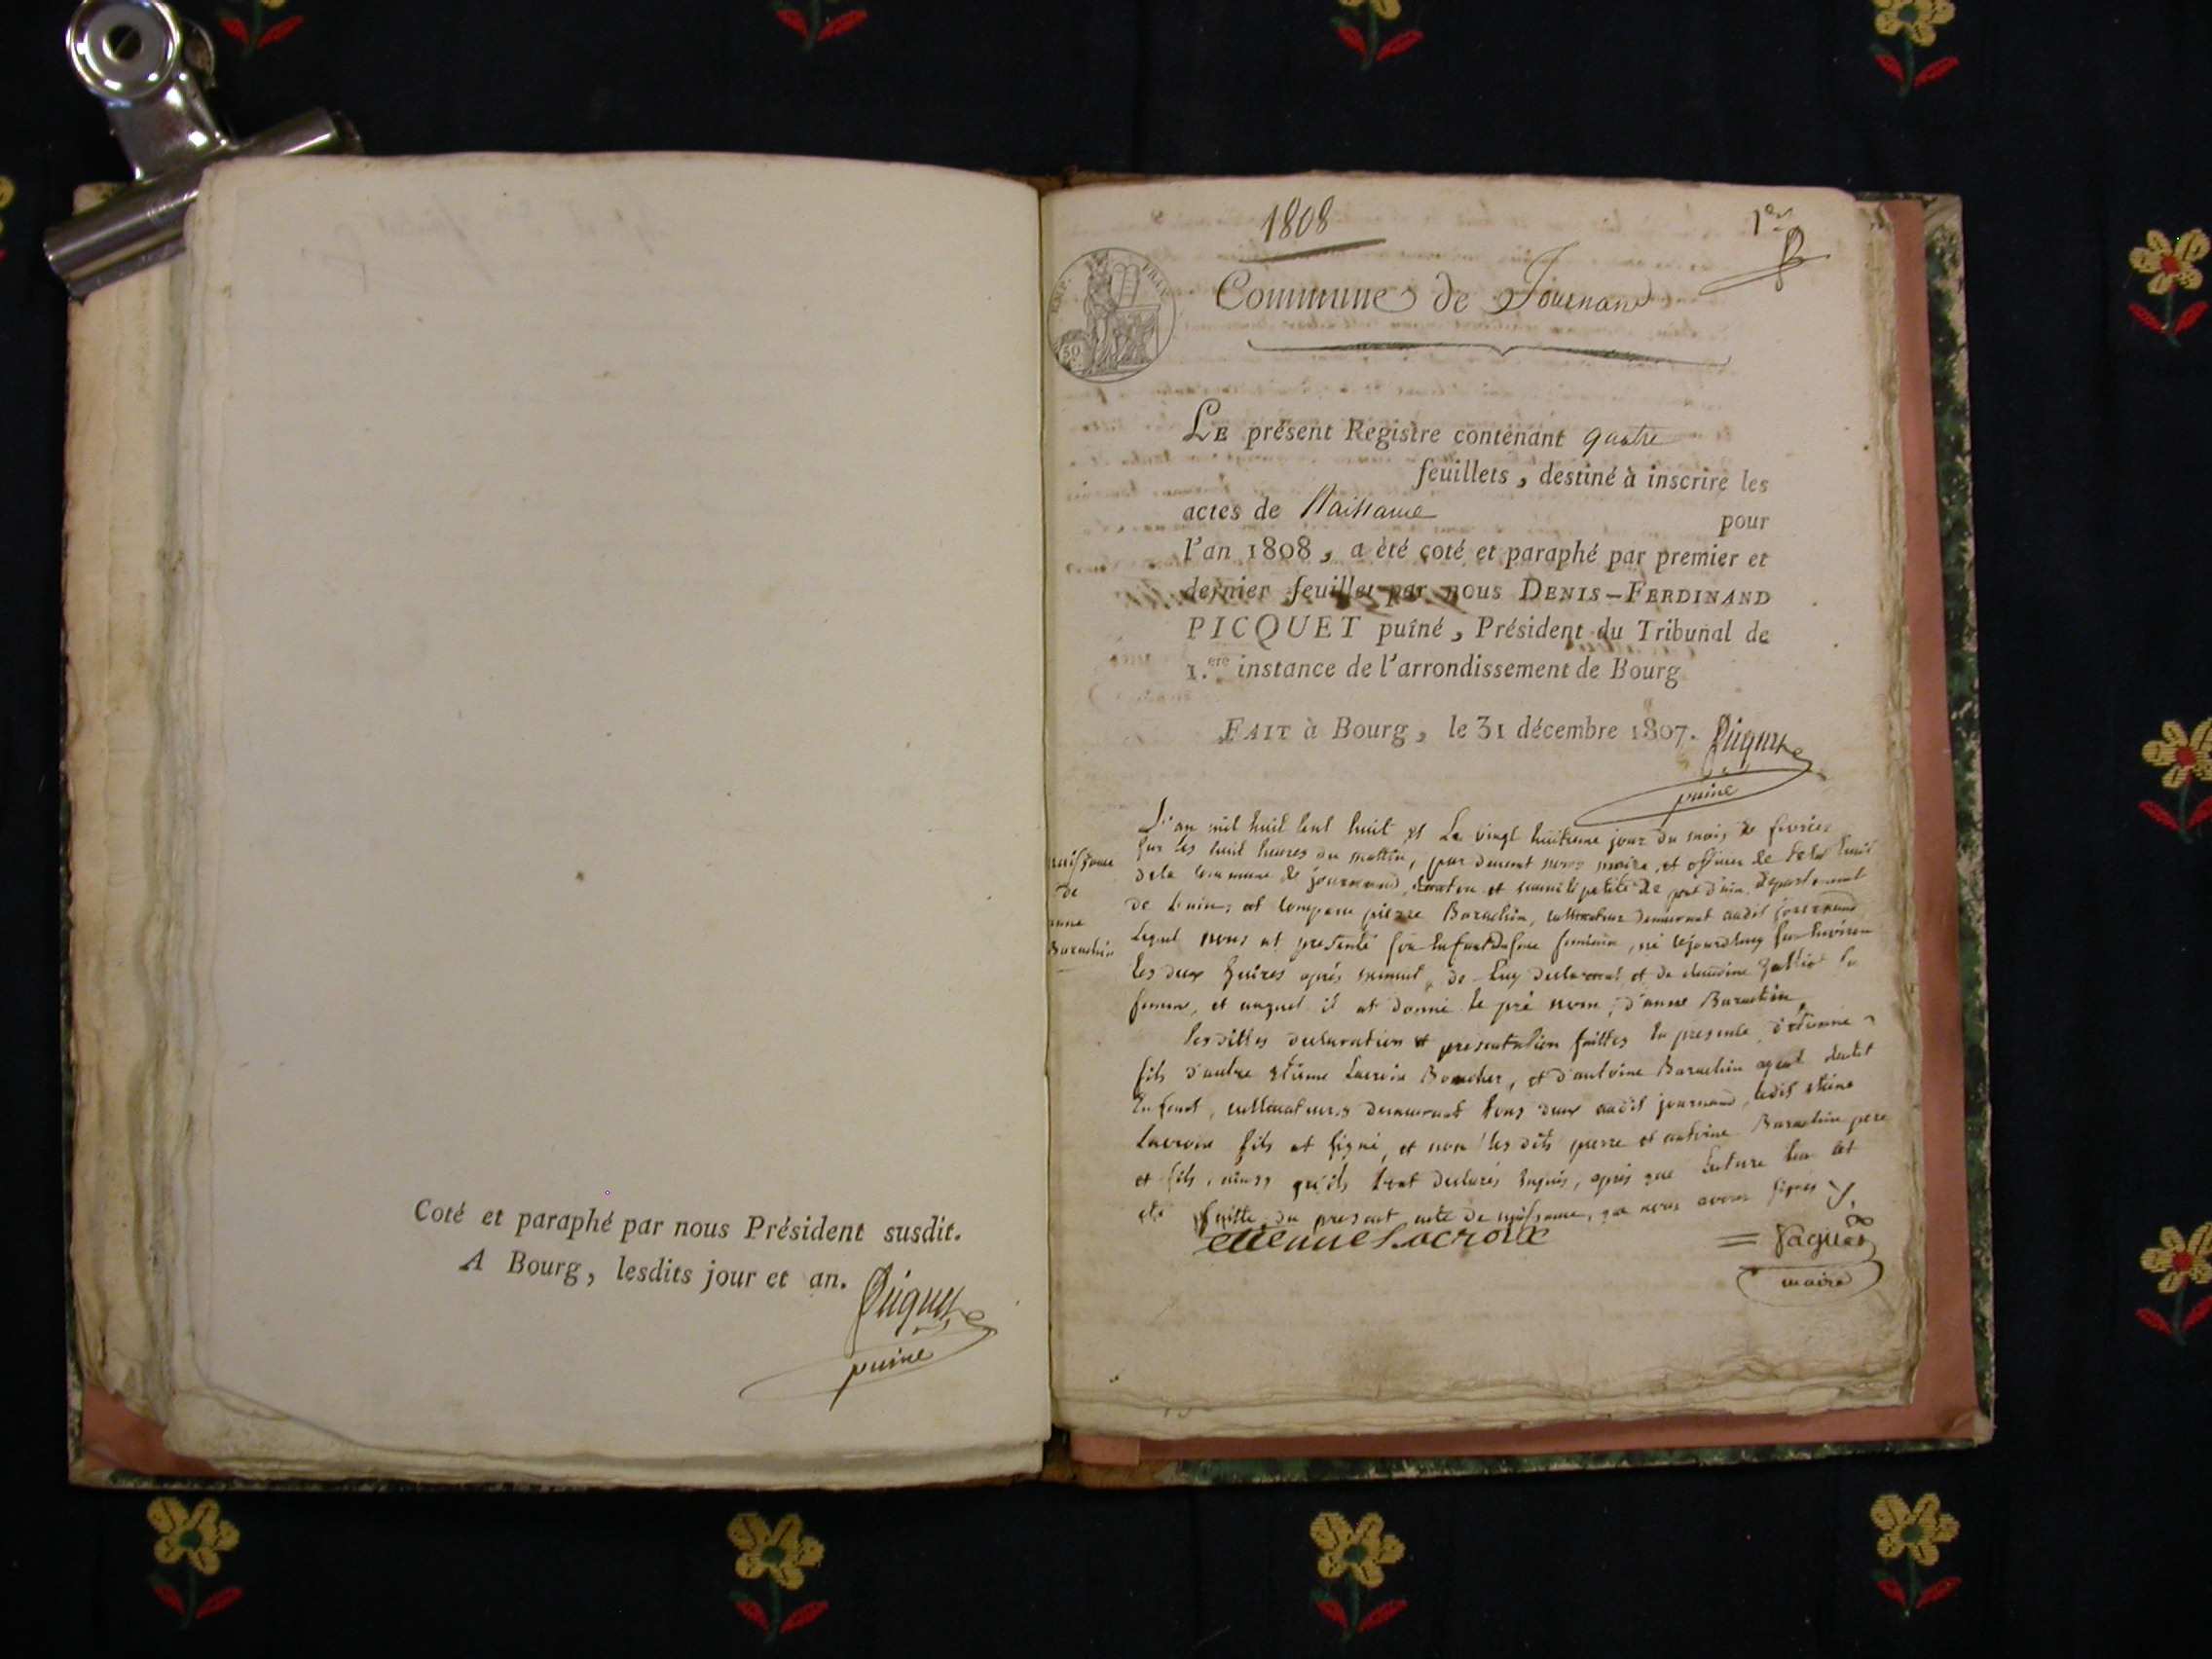 Coté et paraphé par nous Président susdit.
A Bourg, lesdits jour et an. Picquet
puiné
1808
1er
EMP. FRAN.
50
Commune de Journans
LE présent Registre contenant quatre
feuillets, destiné à inscrire les
actes de Naissance pour
l'an 1808, a été coté et paraphé par premier et
dernier feuillet par nous DENIS-FERDINAND
PICQUET puîné, Président du Tribunal de
1.ere instance de l'arrondissement de Bourg
FAIT à Bourg, le 31 décembre 1807. Picquet
puine
naissance
de
anne
Barachin
L'an mil huit cent huit et Le vingt huitieme jour du mois de fevrier
sur les huit heures du mattin, par devant nous maire et officier de
de la commune de journand, canton et de pont d'ain, département
de Lain; at comparu pierre Barachin, cultivateur demeurant audit journand
Lequel nous at presenté son Enfant feminin, né cejourdhuy sur Environ
les deux heures après minuit, de Luy declarant et de claudine sa
femme, et auquel il at donné le pré nom, d'anne Barachin
lesdittes declaration et presentation faittes En presence d'etienne
fils d'autre etienne Lacroix Boucher, et d'antoine Barachin dudit
Enfant, cultivateurs demeurant tous deux audit journand, ledit etiene
Lacroix fils at signé, et non les dits pierre et antoine Barachin pere
et fils, ainsy qu'ils tout declarés Enquis, après que Lecture Leu at
eté faitte, du present acte de naissance, que nous avons signés
etienne Lacroix
= pagues
maire